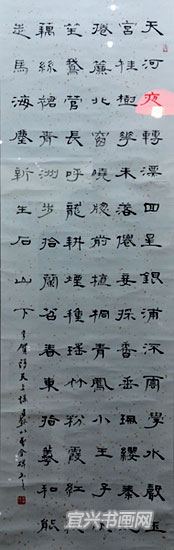 天河夜轉漂回星銀浦流雲學水聲玉
宮桂樹華未落僊妾採香垂珮纓秦妃
捲簾北窗曉牕前植桐青鳳小王子吹
笙鵞管長呼龍耕煙種瑤艸粉霞紅綬
藕絲裙青洲步拾蘭苕春東指羲和能
走馬海塵新生石山下
宜兴书画网